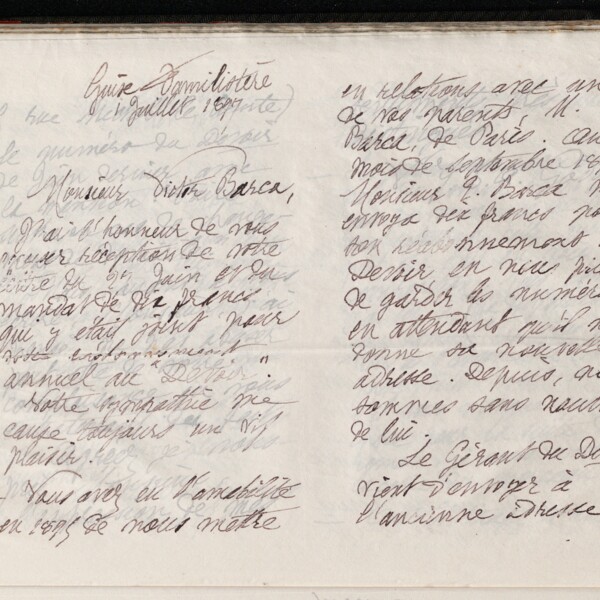 Guise Familistère
1 Juillet 1897
Monsieur Victor Barca,
J'ai l'honneur de vous
accuser réception de votre
lettre du 29 Juin et du
mandat de dix francs
qui y était joint pour
votre
annuel au "Devoir".
Votre sympathie me
cause toujours un vif
plaisir.
Vous avez eu l'amabilité
en 1895 de nous mettre
en relations avec un
de vos parents, M.
Barca, de Paris.
mois de septembre
Monsieur G. Barca
envoya dix francs
son réabonnement
Devoir en nous
de garder les
en attendant qu'il
donne sa nouvelle
adresse. Depuis,
sommes sans
de lui.
Le Gérant du
vient d'envoyer à
l'ancienne adresse